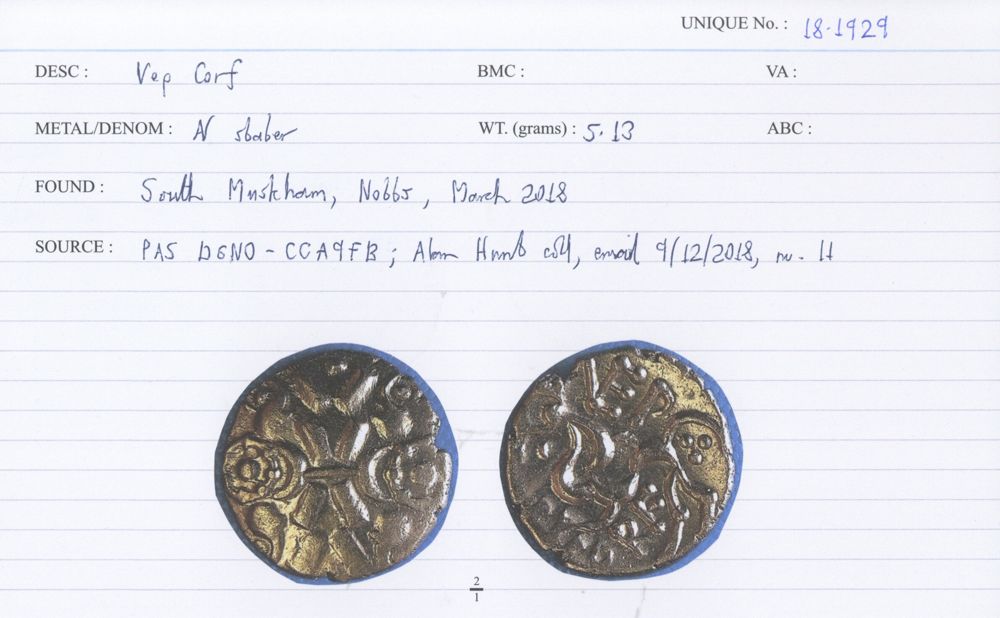 UNIQUE No. : 18.1929
DESC : Vep Corf BMC : VA :
METAL/DENOM : N stater WT. (grams) : 5.13 ABC :
FOUND : South Muskham, Notts, March 2018
SOURCE : PAS DENO-CCA9FB ; Alan coll, email 9/12/2018, no. 11
2
1